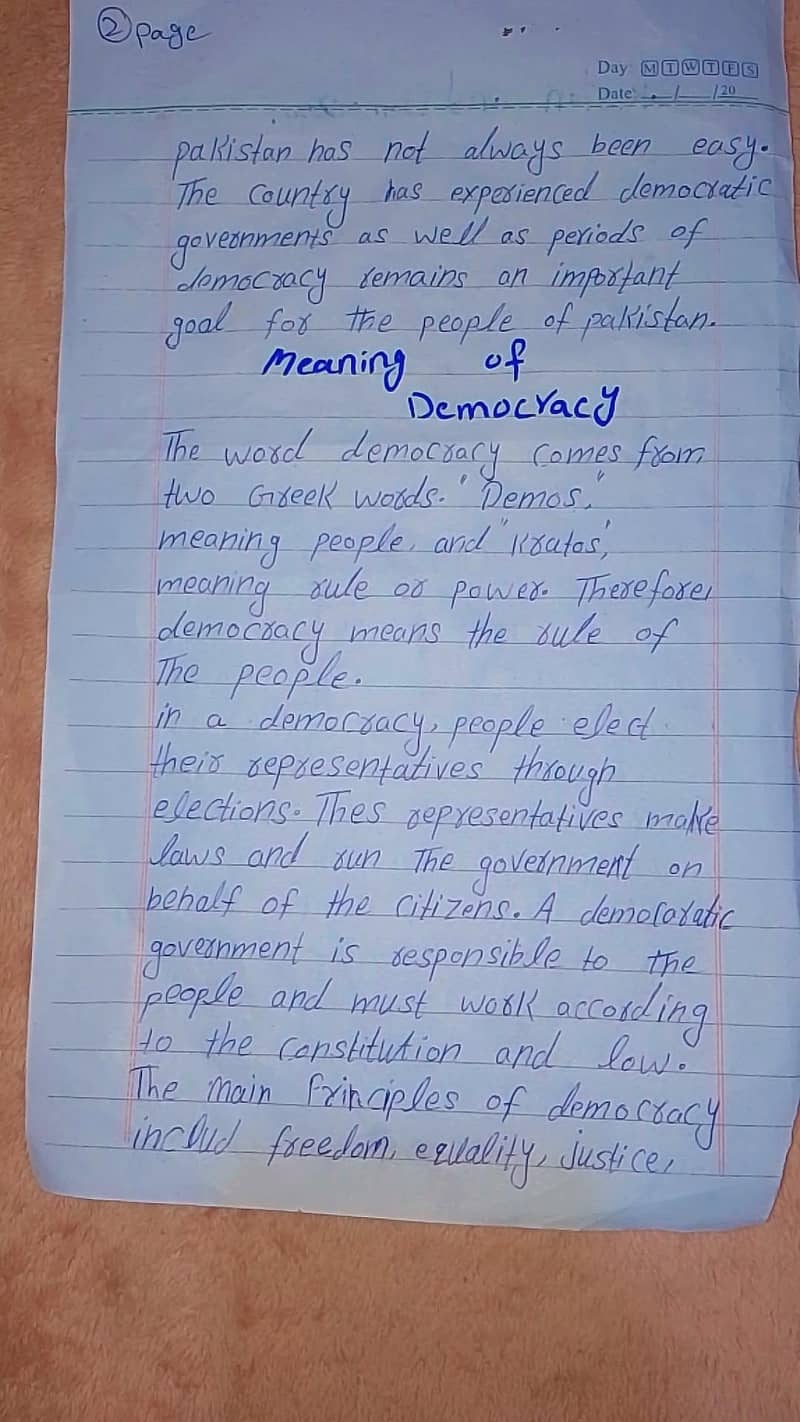 ② page
Day M T W T F S
Date: / /20
pakistan has not always been easy.
The country has experienced democratic
governments as well as periods of
democracy remains an important
goal for the people of pakistan.
Meaning of
Democracy
The word democracy comes from
two Greek words. "Demos,"
meaning people, and "Kratos,
meaning rule or power. Therefore,
democracy means the rule of
The people.
in a democracy, people elect
their representatives through
elections. Thes representatives make
laws and run The government on
behalf of the citizens. A democratic
government is responsible to the
people and must work according
to the constitution and low.
The main Principles of democracy
includ freedom, equality, justice,